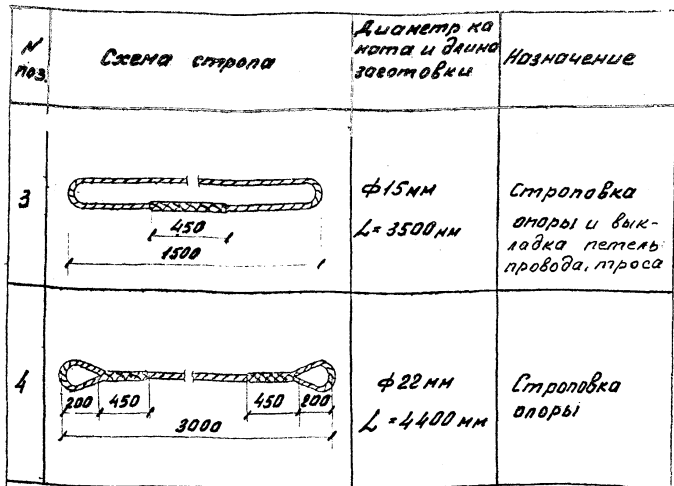 N
поз.
Схема стропа
Диаметр ка
ната и длина
заготовки
Назначение
3
450
1500
ф15мм
L= 3500мм
Строповка
опоры и вык-
ладка петель
провода, троса
4
200
450
450
200
3000
ф22мм
L =4400мм
Строповка
опоры